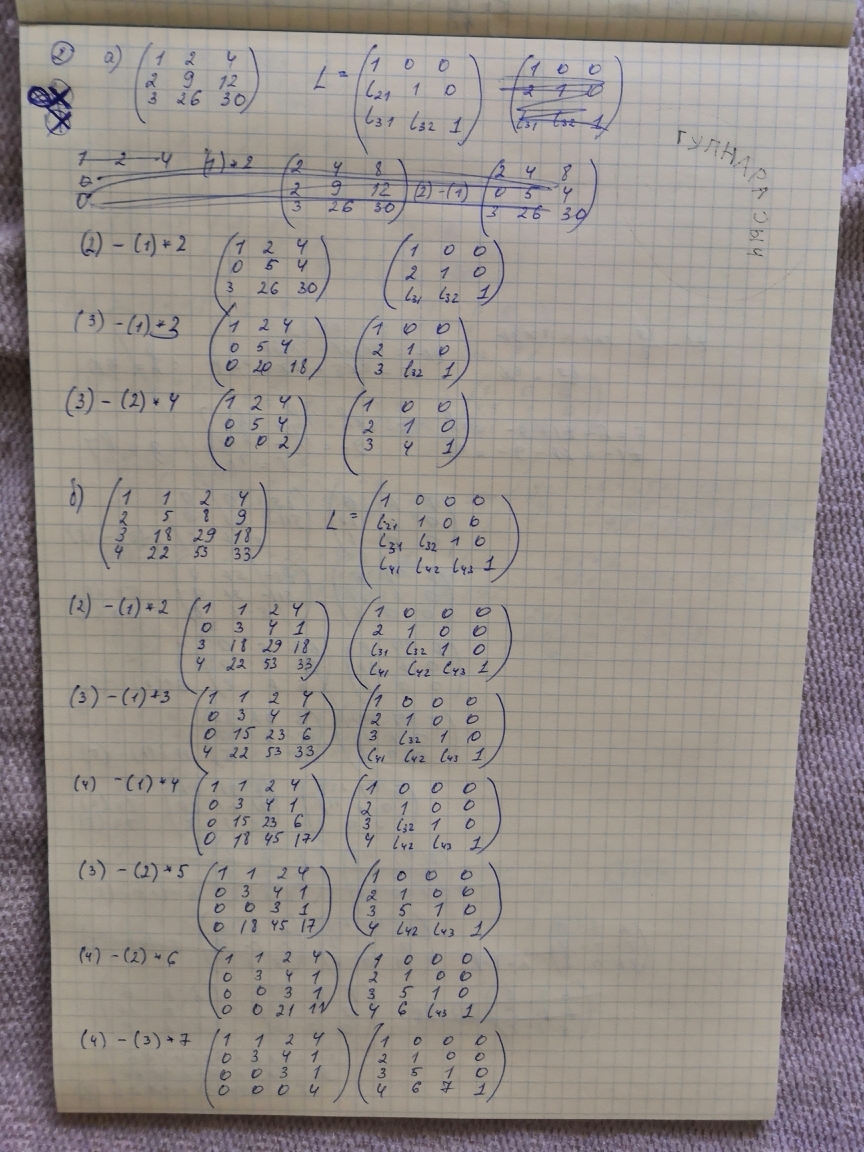 ② а) (1 2 4
2 9 12
3 26 30) L = (1 0 0
l₂₁ 1 0
l₃₁ l₃₂ 1) (1 0 0
2 1 0
l₃₁ l₃₂ 1)
ГУЛНАРА
1 2 4 (1)*2 (2 4 8
2 9 12
3 26 30) (2)-(1) (2 4 8
0 5 4
3 26 30)
0
0
(2) - (1)*2 (1 2 4
0 5 4
3 26 30) (1 0 0
2 1 0
l₃₁ l₃₂ 1)
(3) - (1)*3 (1 2 4
0 5 4
0 20 18) (1 0 0
2 1 0
3 l₃₂ 1)
(3) - (2)*4 (1 2 4
0 5 4
0 0 2) (1 0 0
2 1 0
3 4 1)
б) (1 1 2 4
2 5 8 9
3 18 29 18
4 22 53 33) L = (1 0 0 0
l₂₁ 1 0 0
l₃₁ l₃₂ 1 0
l₄₁ l₄₂ l₄₃ 1)
(2) - (1)*2 (1 1 2 4
0 3 4 1
3 18 29 18
4 22 53 33) (1 0 0 0
2 1 0 0
l₃₁ l₃₂ 1 0
l₄₁ l₄₂ l₄₃ 1)
(3) - (1)*3 (1 1 2 4
0 3 4 1
0 15 23 6
4 22 53 33) (1 0 0 0
2 1 0 0
3 l₃₂ 1 0
l₄₁ l₄₂ l₄₃ 1)
(4) - (1)*4 (1 1 2 4
0 3 4 1
0 15 23 6
0 18 45 17) (1 0 0 0
2 1 0 0
3 l₃₂ 1 0
4 l₄₂ l₄₃ 1)
(3) - (2)*5 (1 1 2 4
0 3 4 1
0 0 3 1
0 18 45 17) (1 0 0 0
2 1 0 0
3 5 1 0
4 l₄₂ l₄₃ 1)
(4) - (2)*6 (1 1 2 4
0 3 4 1
0 0 3 1
0 0 21 11) (1 0 0 0
2 1 0 0
3 5 1 0
4 6 l₄₃ 1)
(4) - (3)*7 (1 1 2 4
0 3 4 1
0 0 3 1
0 0 0 4) (1 0 0 0
2 1 0 0
3 5 1 0
4 6 7 1)